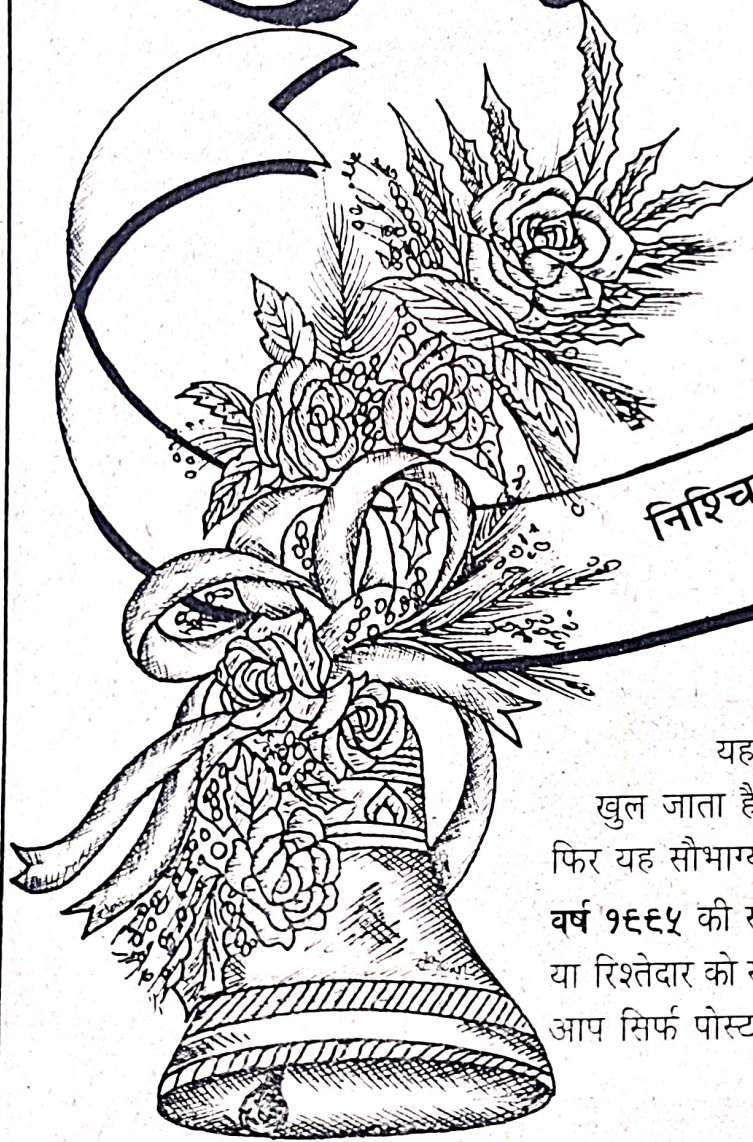 निश्चि
यह
खुल जाता है
फिर यह सौभाग्य
वर्ष १९९५ की
या रिश्तेदार को
आप सिर्फ पोस्ट